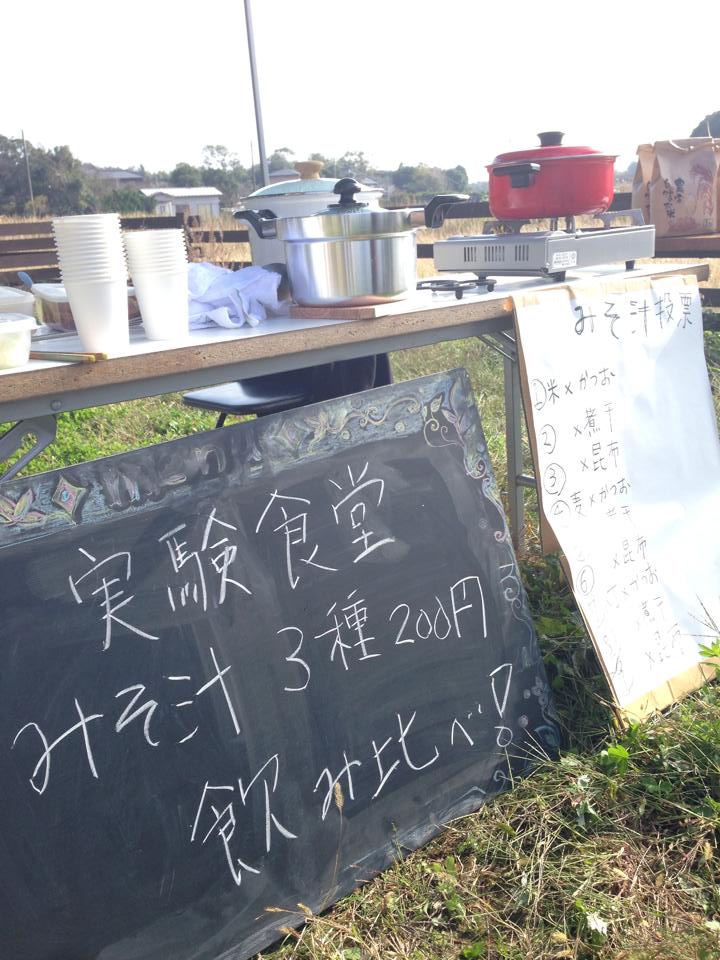 実験食堂
みそ汁 3種 200円
飲み比べ!
みそ汁投票
①米×かつお
② ×煮干
③ ×昆布
④麦×かつお
×昆布
⑥
×かつお
×煮干
×昆布